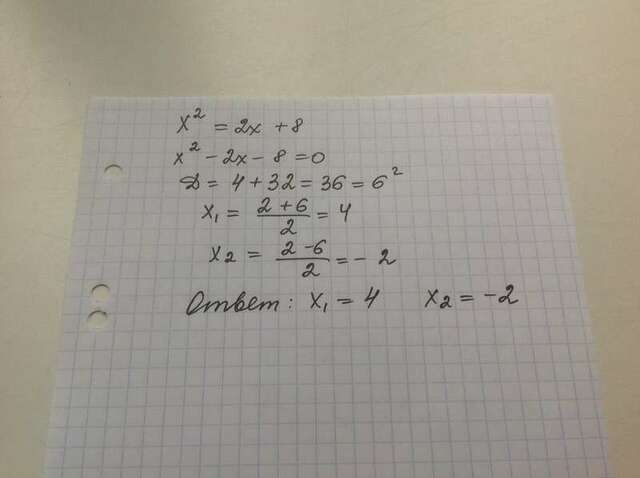 x² = 2x + 8
x² - 2x - 8 = 0
D = 4 + 32 = 36 = 6²
x₁ = (2 + 6)/2 = 4
x₂ = (2 - 6)/2 = - 2
Ответ: x₁ = 4 x₂ = -2